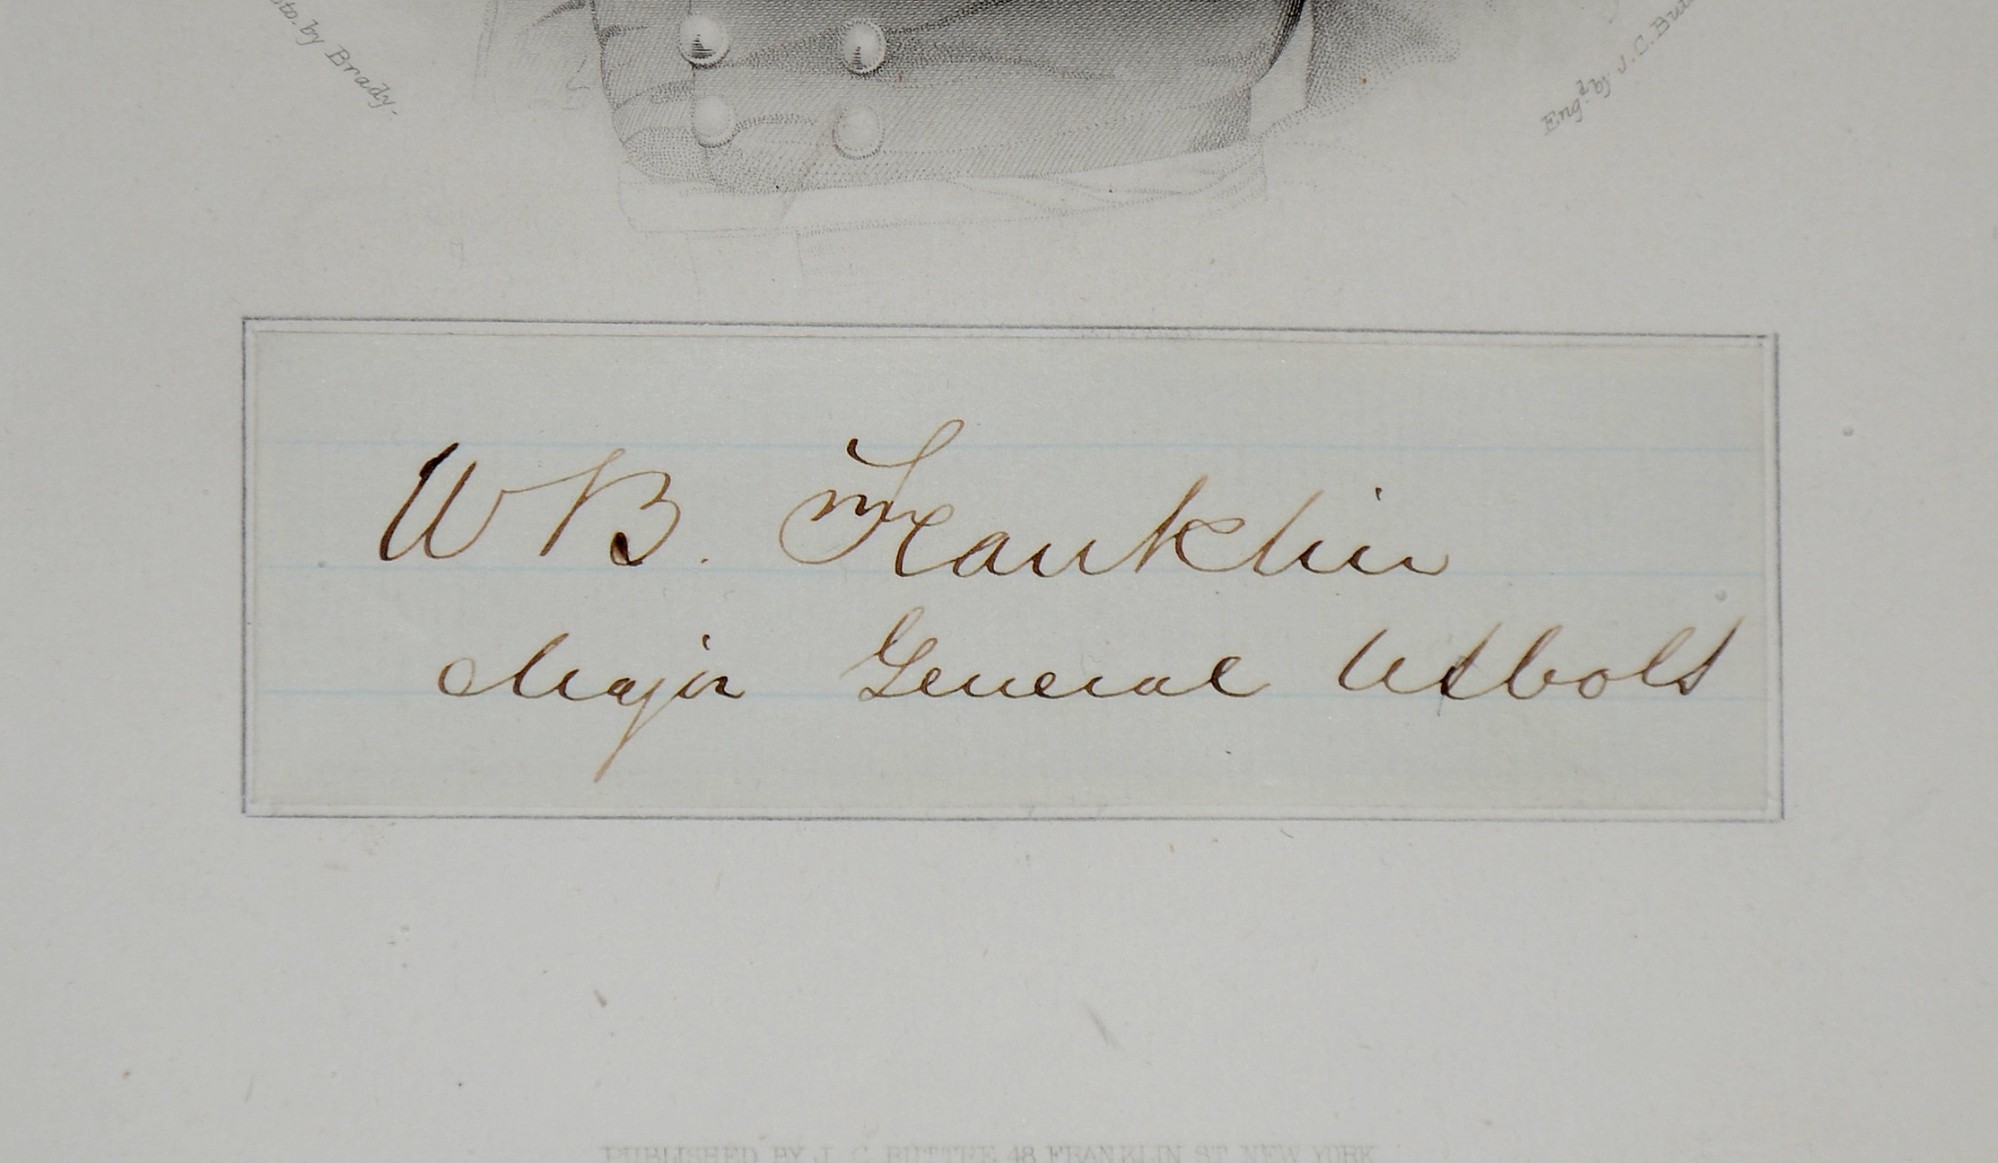 to. by Brady.
Eng.d by J. C. But
W B. Franklin
Major General Vols
PUBLISHED BY J. C. BUTTRE 48 FRANKLIN ST. NEW YORK